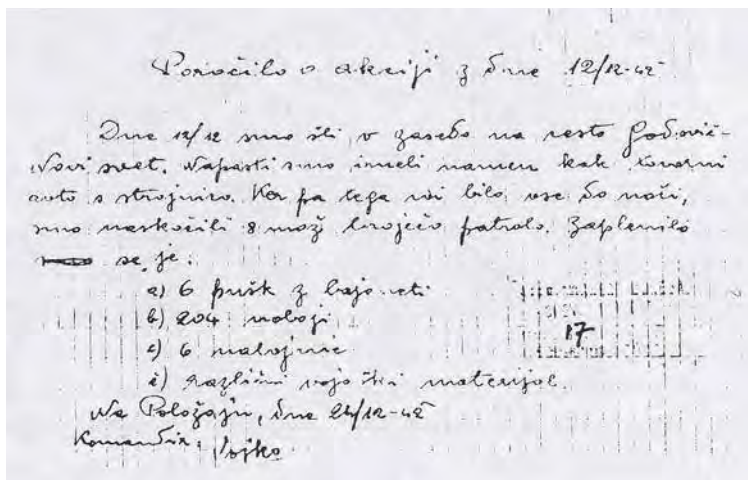 Poročilo o akciji z dne 12/12-42
Dne 12/12 smo šli v zasedo na cesto Godovič-
Novi svet. Napasti smo imeli namen kak tovorni
avto s strojnico. Ker pa tega ni bilo vse do noči,
smo naskočili 8 mož broječo patrolo. Zaplenilo
se je:
a) 6 pušk z bajoneti
b) 204 naboji
c) 6 nabojnic
č) različni vojaški materijal.
17
Na Položaju, dne 24/12-42
Komandir: Vojko